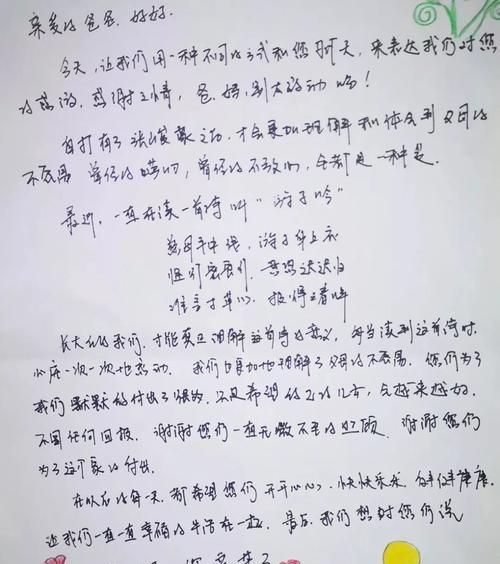 亲爱的爸爸、妈妈.
今天,让我们用一种不同的方式和您聊天,来表达我们对您
的感激,感谢之情,爸、妈,别太激动哈!
自打有了之后,才会更加理解和体会到父母的
不容易 曾经的唠叨,曾经的不放心,全都是一种爱.
最近,一直在读一首诗叫“游子吟”
慈母手中线,游子身上衣
临行密密缝,意恐迟迟归
谁言寸草心,报得三春晖
长大后的我们,才能真正理解这首诗的意义,每当读到这首诗时,
心底一次一次地感动. 我们也更加地理解了父母的不容易. 您们为了
我们默默的付出了很多,只是希望的儿女,会越来越好.
不图任何回报. 谢谢您们一直无微不至的照顾. 谢谢您们
为了这个家的付出.
在以后的每一天,都希望您们开开心心、快快乐乐,健健康康.
让我们一直一直幸福的生活在一起. 最后,我们想对您们说